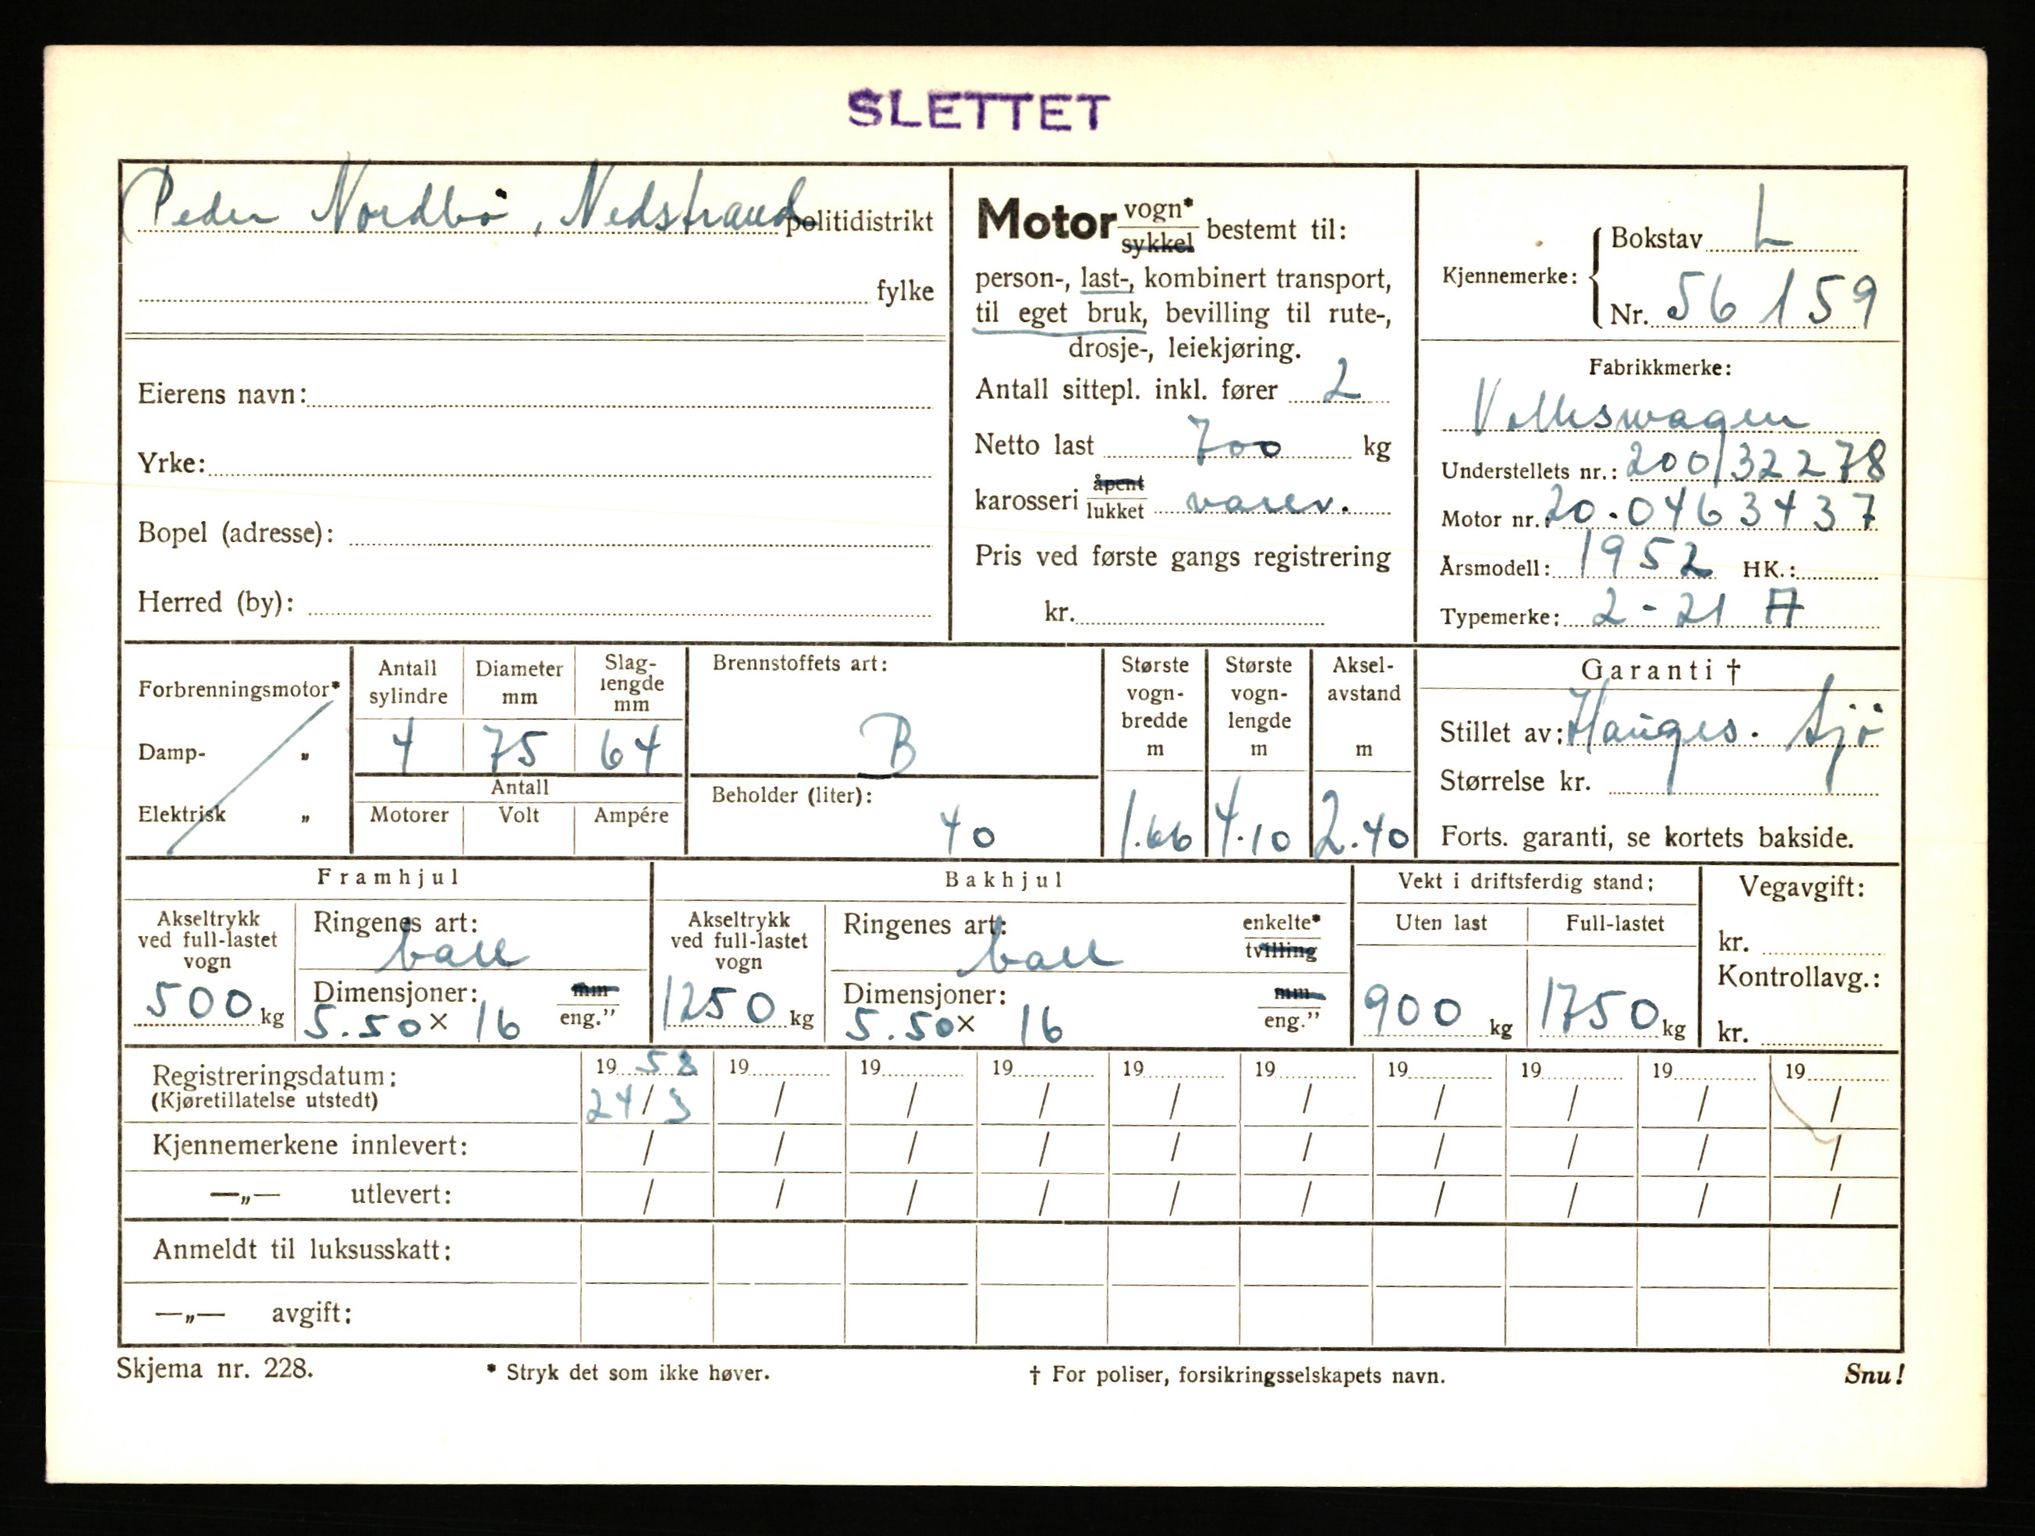 SLETTET
Peder Nordbö, Nedstrand politidistrikt
fylke
Eierens navn:
Yrke:
Bopel (adresse):
Herred (by):
Motor vogn* sykkel bestemt til:
person-, last-, kombinert transport,
til eget bruk, bevilling til rute-,
drosje-, leiekjøring.
Antall sittepl. inkl. fører 2
Netto last 700 kg
karosseri åpent lukket varev.
Pris ved første gangs registrering
kr.
Kjennemerke: Bokstav L
Nr. 56159
Fabrikkmerke:
Volkswagen
Understellets nr.: 200/32278
Motor nr.: 20.0463437
Årsmodell: 1952 HK.:
Typemerke: 2-21 A
Forbrenningsmotor*
Damp- „
Elektrisk „
Antall sylindre
4
Diameter mm
75
Slag- lengde mm
64
Antall
Motorer Volt Ampére
Brennstoffets art:
B
Beholder (liter):
40
Største vogn- bredde m
1.66
Største vogn- lengde m
4.10
Aksel- avstand m
2.40
Garanti †
Stillet av: Hauges. Sjö
Størrelse kr.
Forts. garanti, se kortets bakside.
Framhjul
Akseltrykk ved full-lastet vogn
500 kg
Ringenes art:
ball
Dimensjoner: mm eng."
5.50 × 16
Bakhjul
Akseltrykk ved full-lastet vogn
1250 kg
Ringenes art: enkelte* tvilling
ball
Dimensjoner: mm eng."
5.50 × 16
Vekt i driftsferdig stand:
Uten last Full-lastet
900 kg 1750 kg
Vegavgift:
kr.
Kontrollavg.:
kr.
Registreringsdatum: 1958 19 19 19 19 19 19 19 19 19
(Kjøretillatelse utstedt) 24/3 / / / / / / / / /
Kjennemerkene innlevert: / / / / / / / / / /
—„— utlevert: / / / / / / / / / /
Anmeldt til luksusskatt:
—„— avgift:
Skjema nr. 228. * Stryk det som ikke høver. † For poliser, forsikringsselskapets navn. Snu!